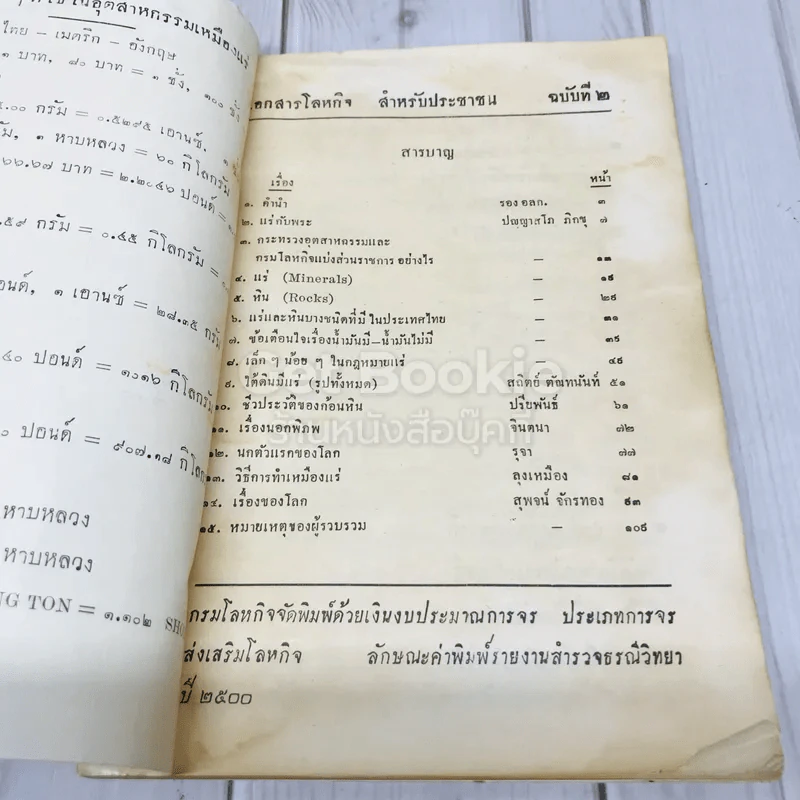 ในอุตสาหกรรมเหมืองแร่
ไทย – เมตริก – อังกฤษ
๑ บาท, ๘๐ บาท = ๑ ชั่ง, ๑๐๐ ชั่ง
กรัม = ๐.๕๒๙๕ เอานซ์,
๑ หาบหลวง = ๖๐ กิโลกรัม
๖๖.๖๗ บาท = ๒.๒๐๔๖ ปอนด์ =
กรัม = ๐.๔๕ กิโลกรัม =
๑ เอานซ์ = ๒๘.๓๕ กรัม
ปอนด์ = ๑๐๑๖ กิโลกรัม
ปอนด์ = ๙๐๗.๑๘ กิโล
หาบหลวง
หาบหลวง
TON = ๑.๑๐๒
เอกสารโลหกิจ สำหรับประชาชน ฉบับที่ ๒
สารบาญ
เรื่อง หน้า
๑. คำนำ รอง อลก. ๓
๒. แร่กับพระ ปญฺญาสโภ ภิกขุ ๗
๓. กระทรวงอุตสาหกรรมและ
กรมโลหกิจแบ่งส่วนราชการ อย่างไร — ๑๓
๔. แร่ (Minerals) — ๑๙
๕. หิน (Rocks) — ๒๙
๖. แร่และหินบางชนิดที่มีในประเทศไทย — ๓๑
๗. ข้อเตือนใจเรื่องน้ำมันมี–น้ำมันไม่มี — ๓๙
๘. เล็ก ๆ น้อย ๆ ในกฎหมายแร่ — ๔๙
๙. ใต้ดินมีแร่ (รูปทั้งหมด) สถิตย์ ตัณฑนันท์ ๕๑
๑๐. ชีวประวัติของก้อนหิน ปรียพันธ์ ๖๑
๑๑. เรื่องนอกพิภพ จินตนา ๗๒
๑๒. นกตัวแรกของโลก รุจา ๗๗
๑๓. วิธีการทำเหมืองแร่ ลุงเหมือง ๘๑
๑๔. เรื่องของโลก สุพจน์ จักรทอง ๙๓
๑๕. หมายเหตุของผู้รวบรวม — ๑๐๙
กรมโลหกิจจัดพิมพ์ด้วยเงินงบประมาณการจร ประเภทการจร
ส่งเสริมโลหกิจ ลักษณะค่าพิมพ์รายงานสำรวจธรณีวิทยา
ปี ๒๕๐๐
Bookie
ร้านหนังสือบุ๊คกี้